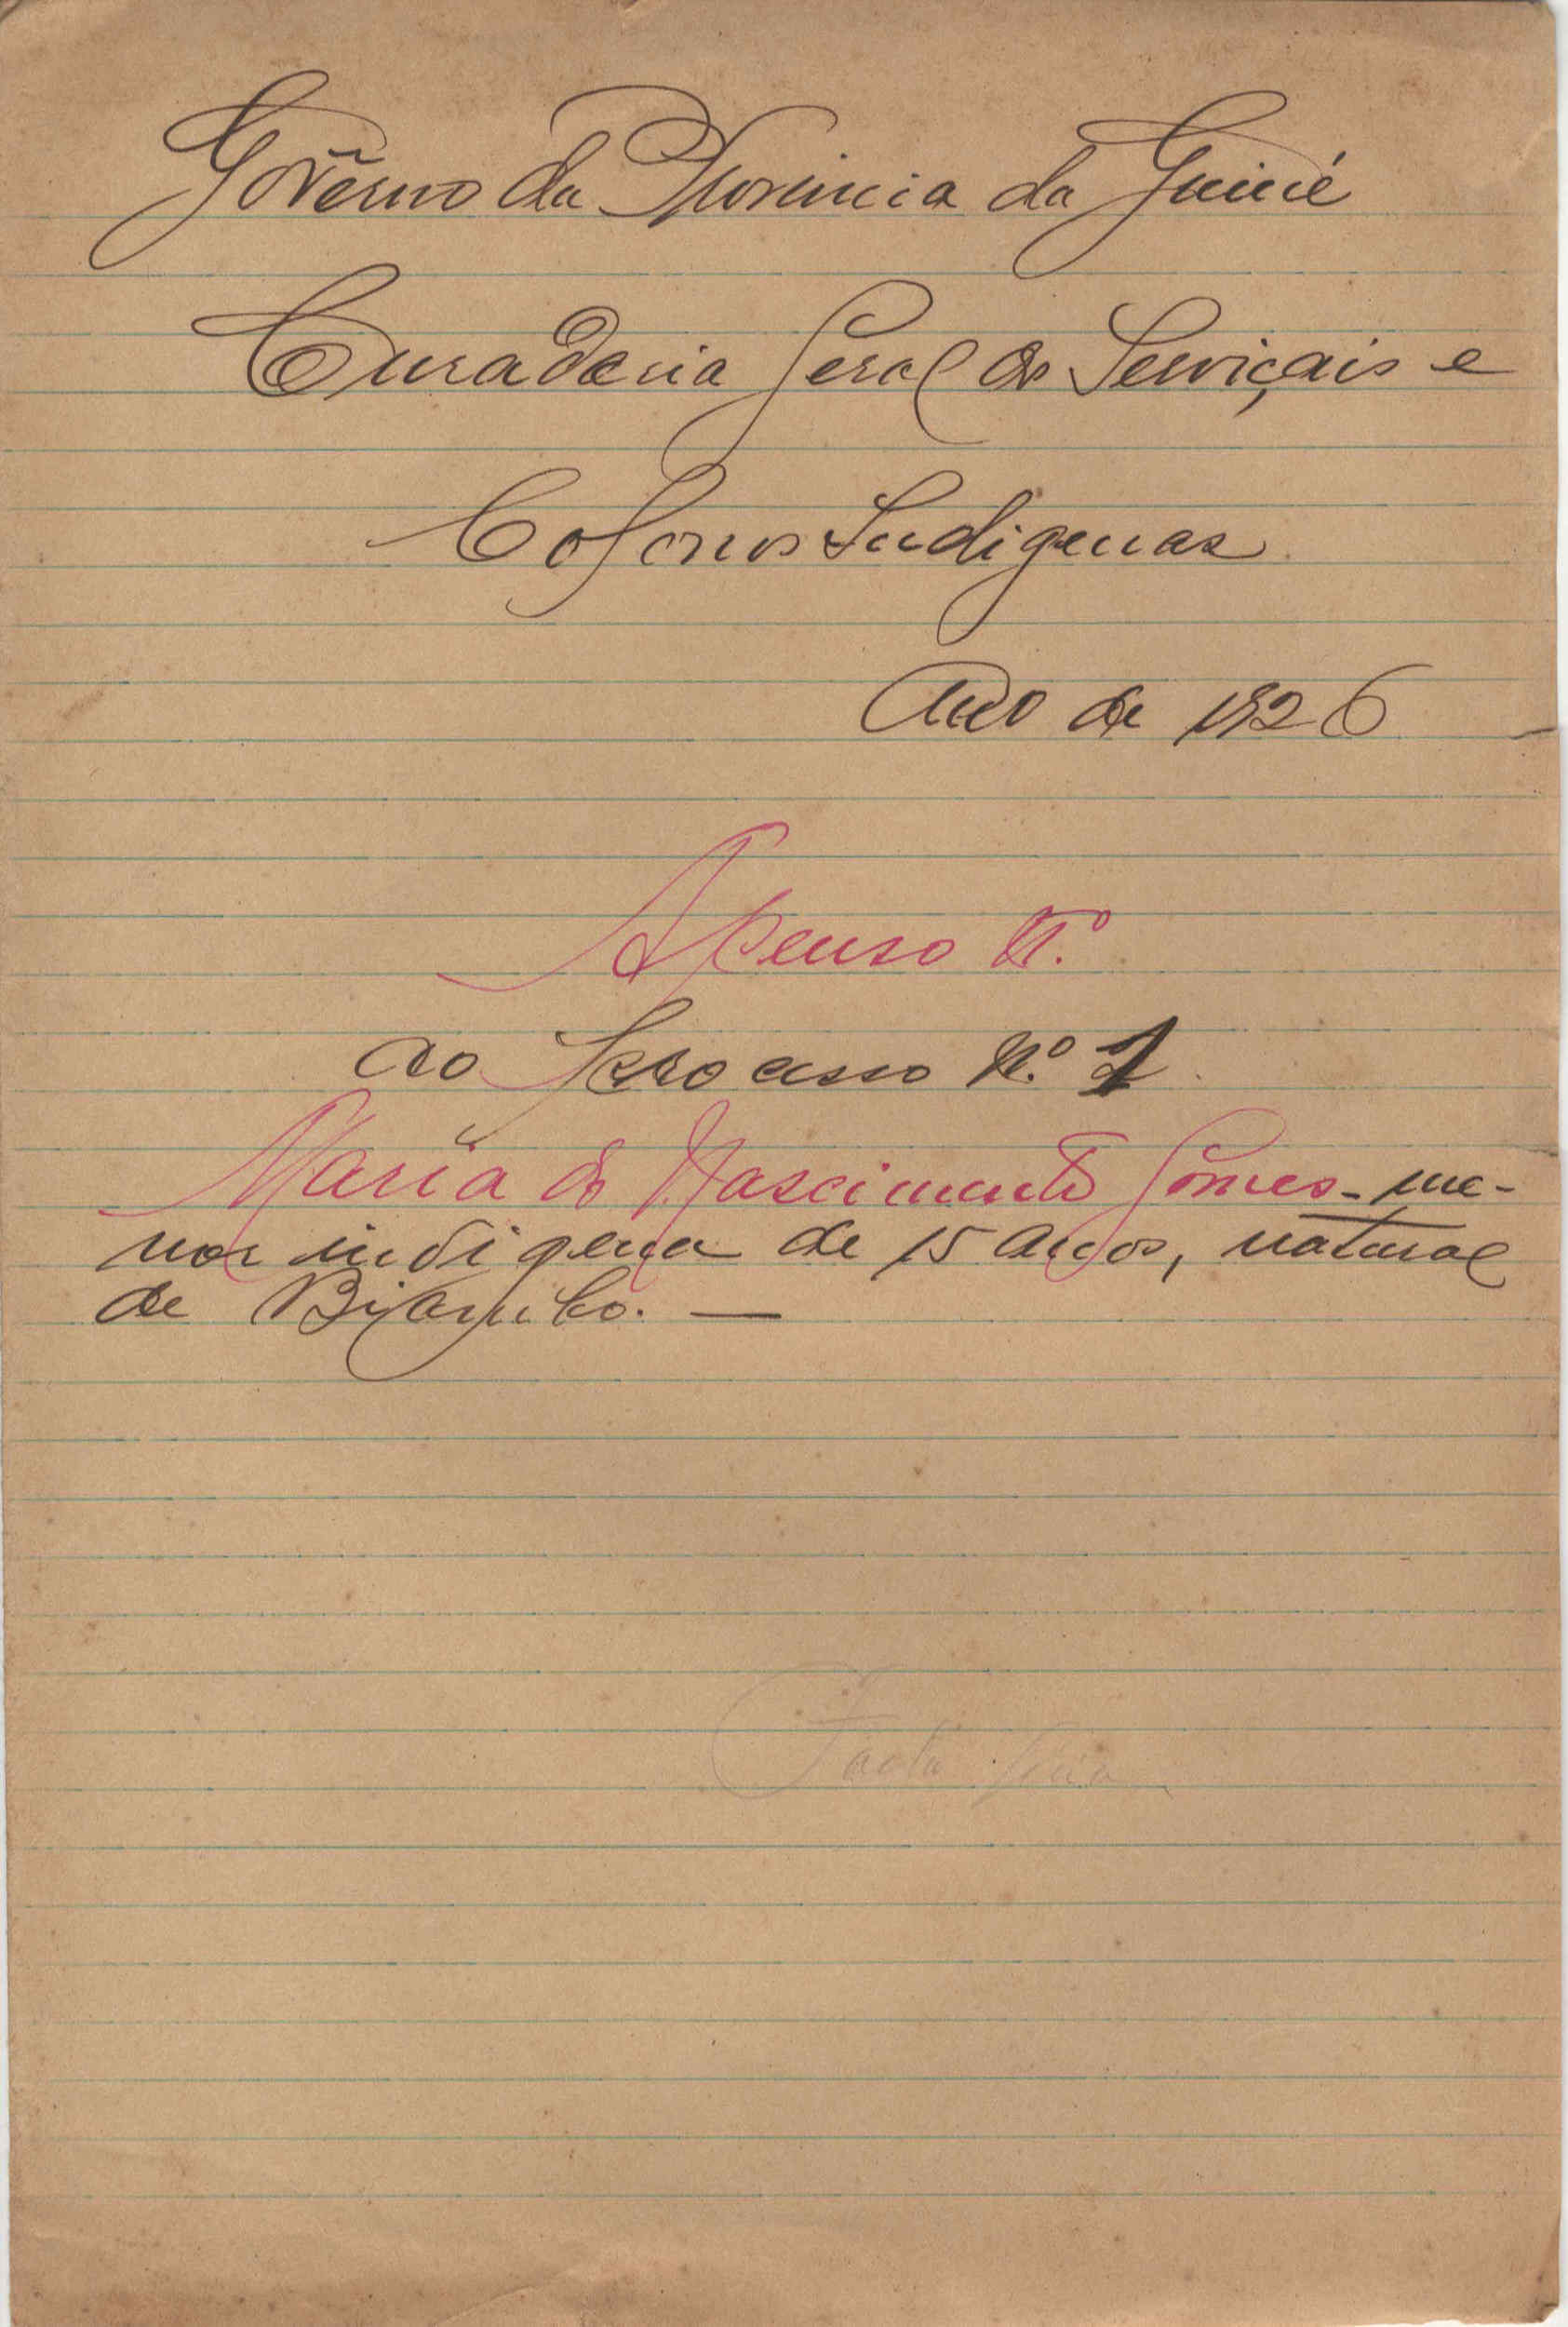 Govêrno da Provincia da Guiné
Curadoria Geral dos Serviçais e
Colonos Indigenas
Ano de 1926
Apenso N.º
ao Processo N.º 1
Maria do Nascimento Gomes - me-
nor indigena de 15 anos, natural
de Biombo. —